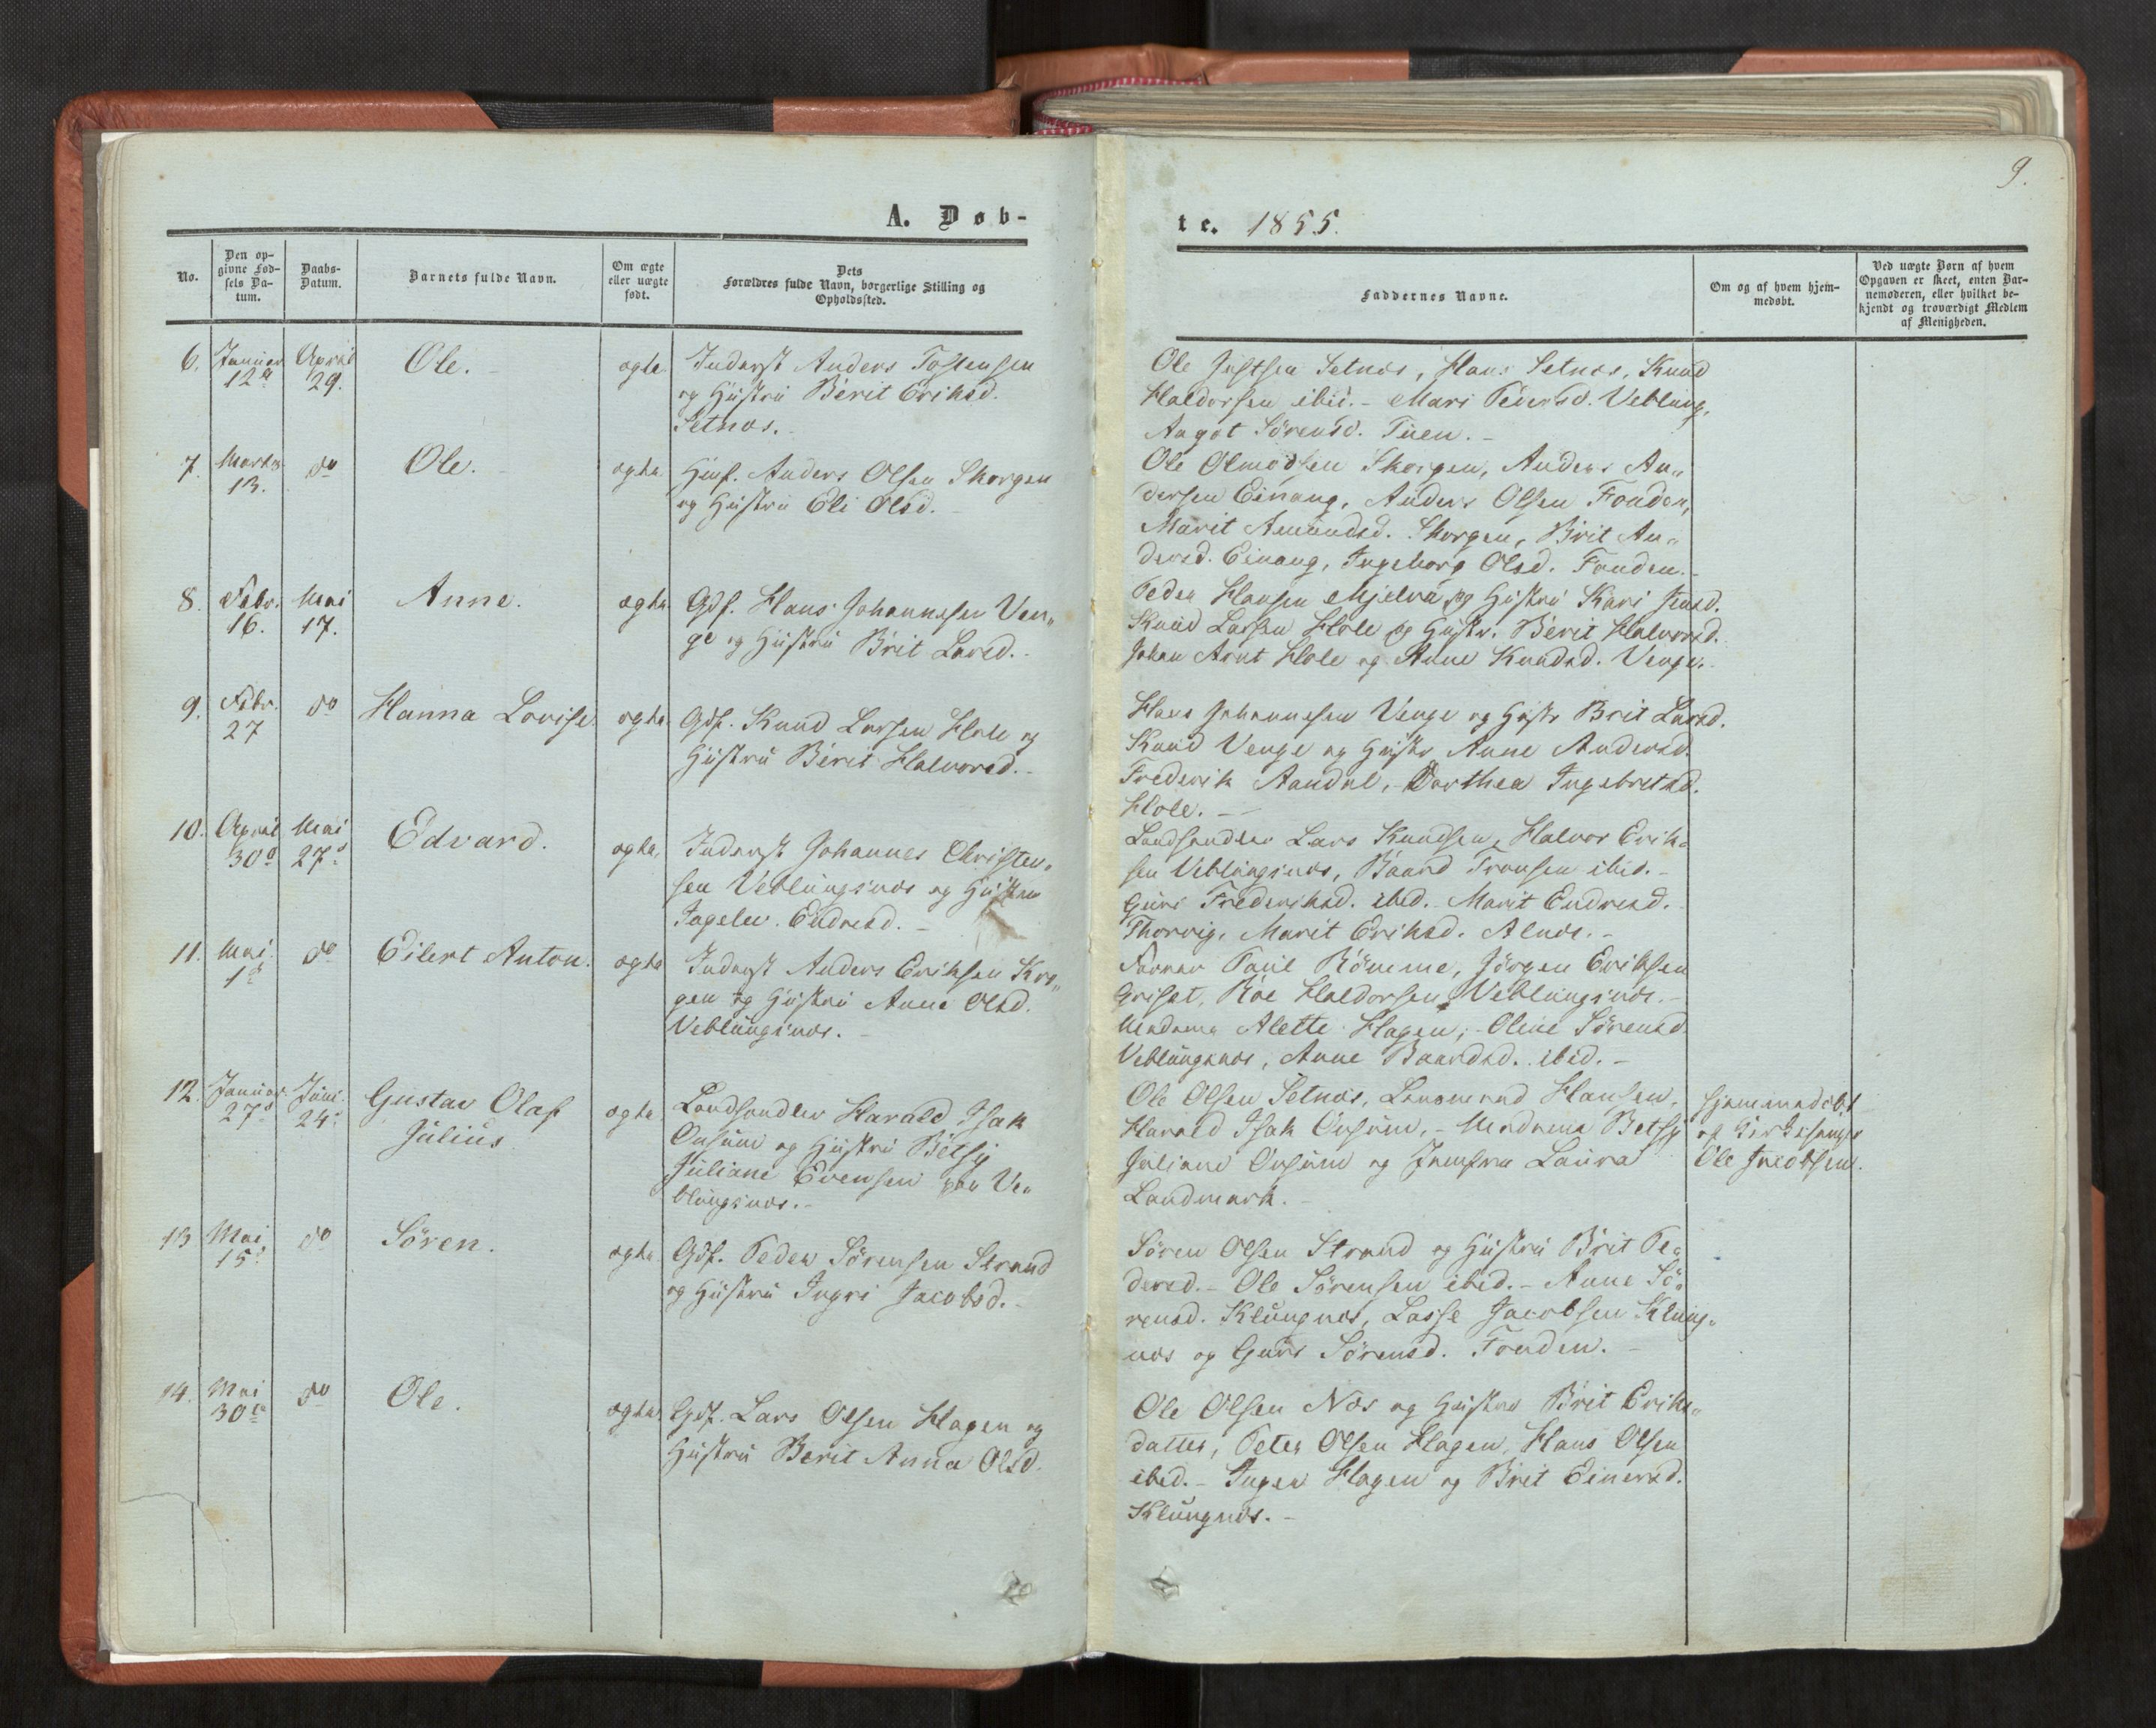 9.
A. Døb-
te. 1855.
No.
Den op-
givne Fød-
sels Da-
tum.
Daabs-
Datum.
Barnets fulde Navn.
Om ægte
eller uægte
født.
Dets
Forældres fulde Navn, borgerlige Stilling og
Opholdssted.
Faddernes Navne.
Om og af hvem hjem-
medøbt.
Ved uægte Børn af hvem
Opgaven er skeet, enten Bar-
nemoderen, eller hvilket be-
kjendt og troværdigt Medlem
af Menigheden.
6.
Januar
12te
April
29.
Ole.
ægte
Inderst Anders Tostensen
og Hustru Bérit Eriksd.
Setnæs.
Ole Justsen Setnæs, Hans Setnæs, Knud
Haldorsen ibid. - Mari Pedersd. Veblung,
Aagot Sörensd. Tuen. -
7.
Marts
13.
do
Ole.
ægte
Husf. Anders Olsen Skorgen
og Hustru Eli Olsd. -
Ole Olmodsen Skorgen, Anders An-
dersen Einang, Anders Olsen Fonden,
Marit Amundsd. Skorgen, Brit An-
dersd. Einang, Ingeborg Olsd. Fonden.
8.
Febr.
16.
Mai
17.
Anne.
ægte
Gdf. Hans Johannesen Ven-
ge og Hustru Brit Larsd. -
Peder Hansen Mjelva og Hustru Kari Jensd.
Knud Larsen Hole og Hustr. Bérit Halvorsd.
Johan Arnt Hole og Anne Knudsd. Venge.
9.
Febr.
27
do
Hanna Lovise
ægte
Gdf. Knud Larsen Hole og
Hustru Bérit Halvorsd. -
Hans Johannesen Venge og Hustr Brit Larsd.
Knud Venge og Hustr Anne Andersd.
Frederik Aandal, Dorthea Ingebretsd.
Hole. -
10.
April
30te
Mai
27de
Edvard.
ægte
Inderst Johannes Christen-
sen Veblungsnæs og Hustru
Ingeleu. Endresd. -
Landhandler Lars Knudsen, Halvor Erik-
sen Veblungsnæs, Baard Tronsen ibid. -
Guri Frederiksd. ibid. Marit Endresd.
Thorvig, Marit Eriksd. Alnæs. -
11.
Mai
1ste
do
Eilert Anton.
ægte
Inderst Anders Eriksen Kro-
gen og Hustru Anne Olsd.
Veblungsnæs. -
Farver Paul Römme, Jörgen Eriksen
Griset, Roe Haldorsen Veblungsnæs. -
Madame Alette Hagen, Oline Sörensd
Veblungsnæs, Anne Baardsd. ibid. -
12.
Januar
27de
Juni
24de
Gustav Olaf
Julius
ægte
Landhandler Harald Isak
Onsum og Hustru Betsy
Juliane Evensen paa Ve-
blungsnæs. -
Ole Olsen Setnæs, Lensmand Hansen,
Harald Isak Onsum, - Madame Betsy
Juliane Onsum og Jomfru Laura
Landmark. -
Hjemmedøbt
af Kirkesanger
Ole Jacobsen.
13
Mai
15de
do
Sören.
ægte
Gdf. Peder Sörensen Strand
og Hustru Ingri Jacobsd. -
Sören Olsen Strand og Hustru Brit Pe-
dersd. - Ole Sörensen ibid. - Anne Sö-
rensd. Klungnæs, Lasse Jacobsen Klung-
næs og Guri Sörensd. Fonden. -
14.
Mai
30te
do
Ole.
ægte
Gdf. Lars Olsen Hagen og
Hustru Berit Anna Olsd.
Ole Olsen Næs og Hustru Brit Eriks-
datter, Peter Olsen Hagen, Hans Olsen
ibid. - Inger Hagen og Brit Einersd.
Klungnæs. -